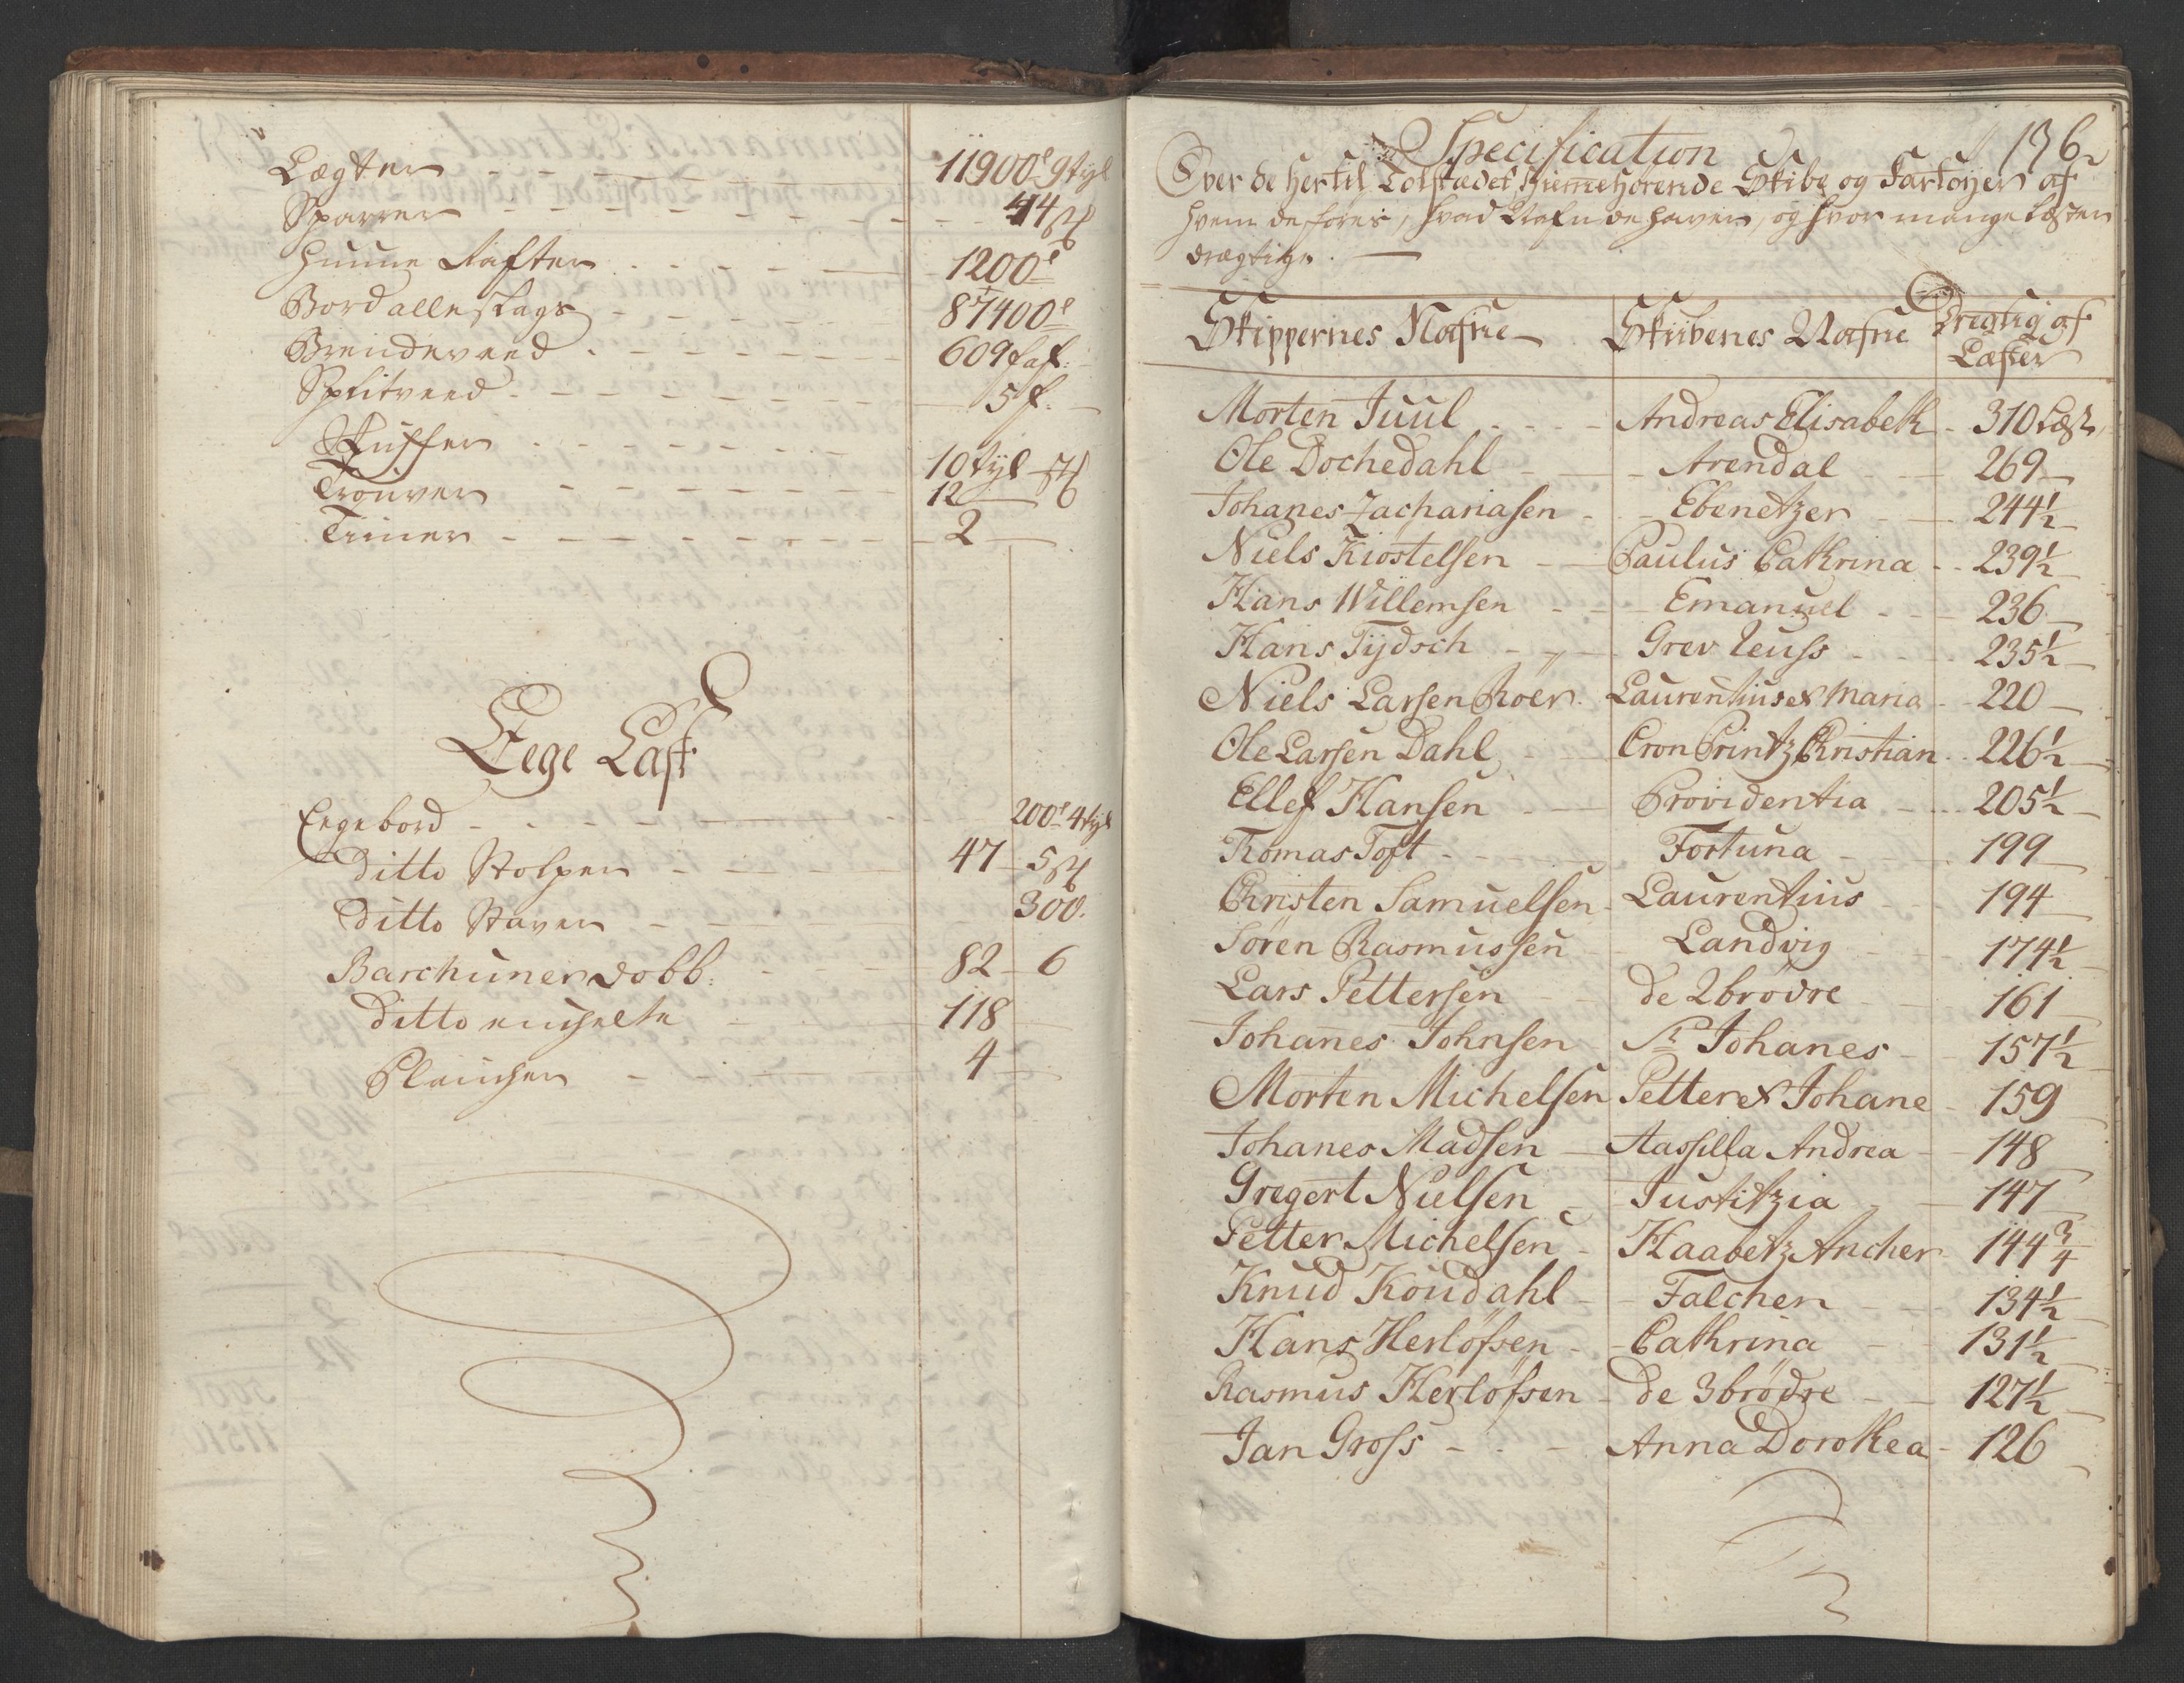 Lægter 11900e 9 tyl
Sparrer 44 st
Huune Rafter 1200e
Bord alle slags 87400e
Brendeveed 609 faf:
Splitveed 5 f.
10 tyl st
Trönver 12
Timer 2
Eege Last
Eegebord 200e 4 tyl
Ditto Stolper 47 5 st
Ditto Staver 300.
Barchuner dobb: 82 6
Ditto enchelte 118
Plancher 4
136
Specification
Over de hertil Tolstædet hiemehörende Skibe og Fartöyer af
hvem de föres, hvad Nafn de haver, og hvor mange Læster
drægtige.
Skippernes Nafne Skibenes Nafne Dregtig af
Læster
Morten Juul Andreas Elisabeth 310 Læst
Ole Dochedahl Arendal 269
Johanes Zachariasen Ebenetzer 244½
Niels Kiostelsen Paulus Cathrina 239½
Hans Willemsen Emanuel 236
Hans Tÿdsch Grev Reuss 235½
Niels Larsen Roer Laurentius & Maria 220
Ole Larsen Dahl Cron Printz Christian 226½
Ellef Hansen Providentia 205½
Thomas Toft Fortuna 199
Christen Samuelsen Laurentius 194
Sören Rasmussen Landvig 174½
Lars Pettersen de 2 brödre 161
Johanes Johnsen St Johanes 157½
Morten Michelsen Petter & Johane 159
Johanes Madsen Aassilla Andrea 148
Gregert Nielsen Justitzia 147
Petter Michelsen Haabetz Ancher 144¾
Knud Koudahl Falchen 134½
Hans Herlofsen Cathrina 131½
Rasmus Herlofsen de 3 brödre 127½
Jan Gross Anna Dorothea 126